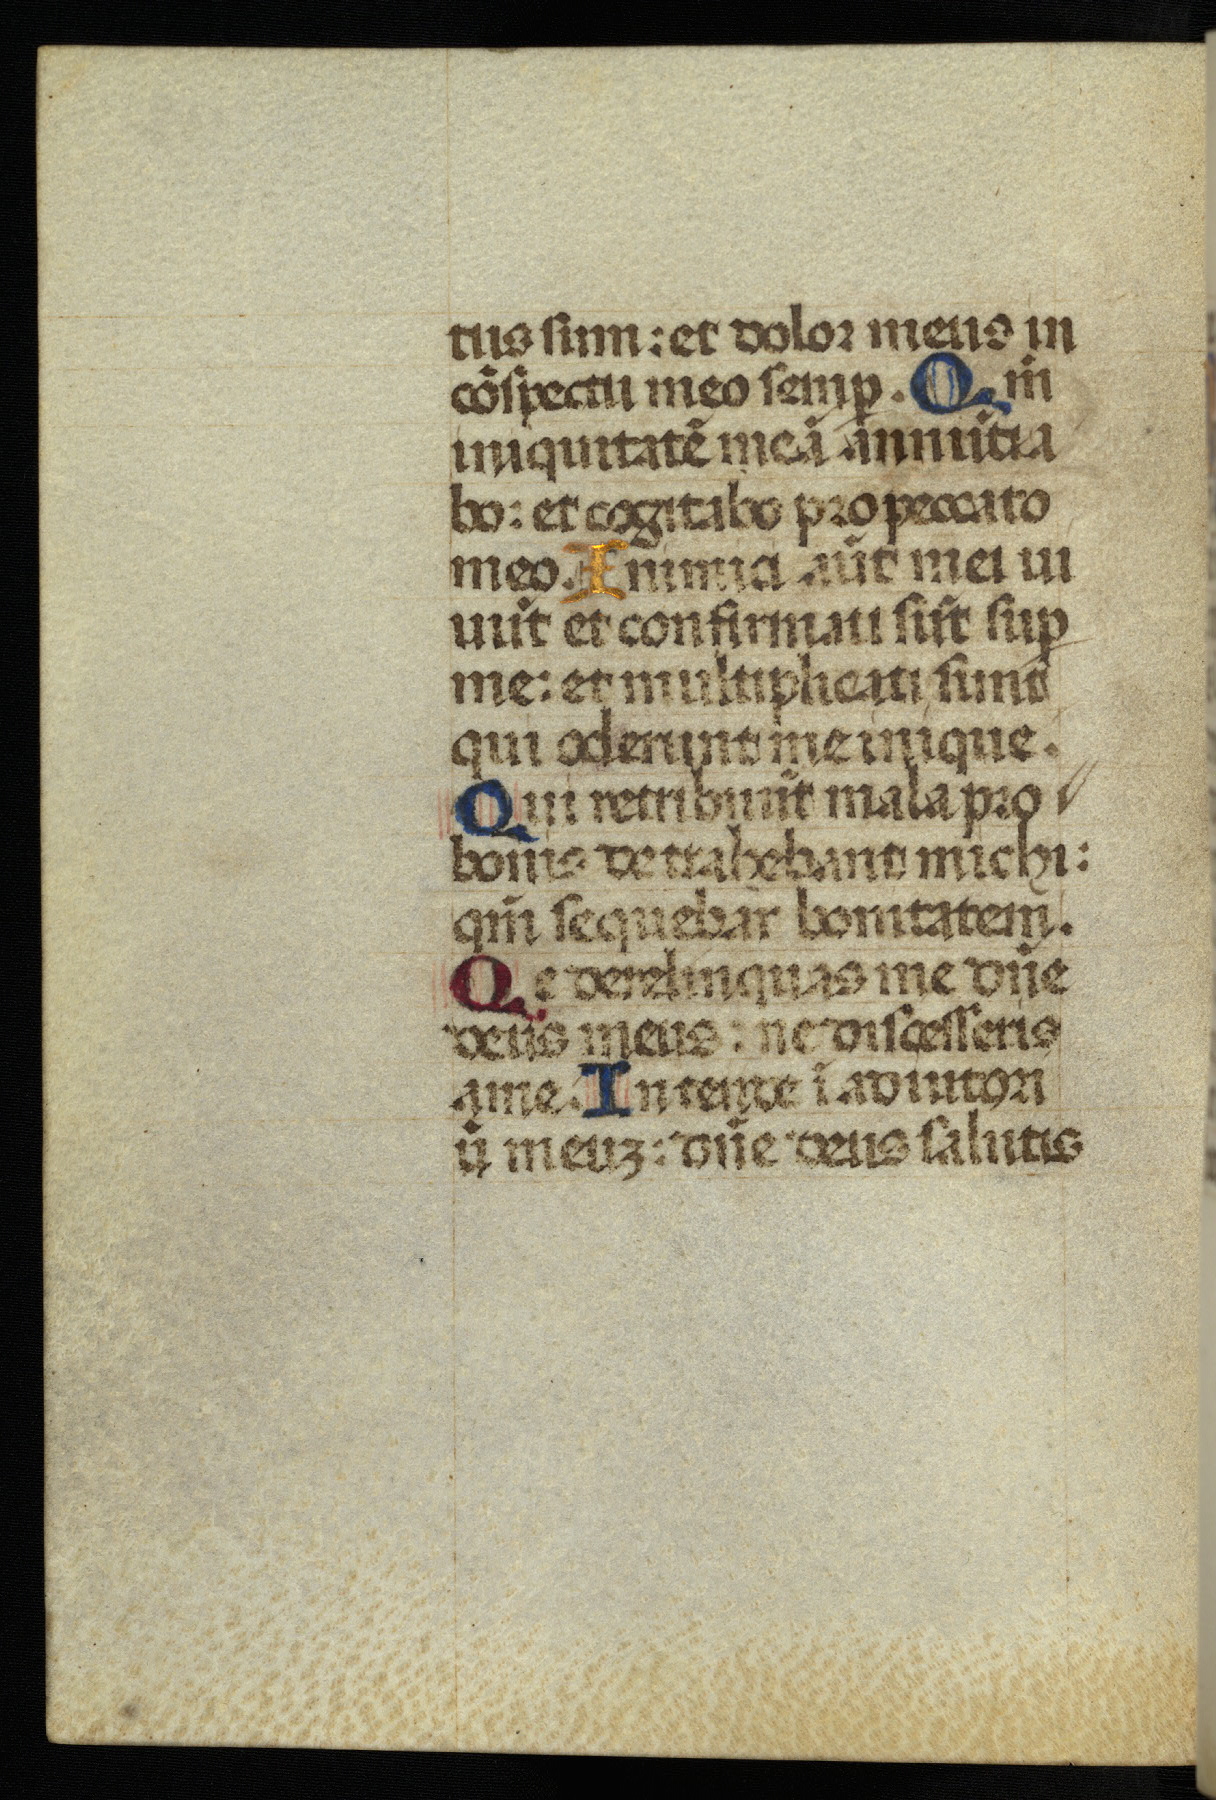 tus sum: et dolor meus in
cōspectu meo semꝑ. Qm̄
iniquitatē meā annūtia
bo: et cogitabo pro peccato
meo. Inimici aūt mei ui
uūt et confirmati sūt suꝑ
me: et multiplicati sunt
qui oderunt me inique.
Qui retribuūt mala pro
bonis detrahebant michi:
qm̄ sequebar bonitatem.
Qe derelinquas me dn̄e
deus meus: ne discesseris
a me. Intende ī adiutori
ū meuꝫ: dn̄e deus salutis